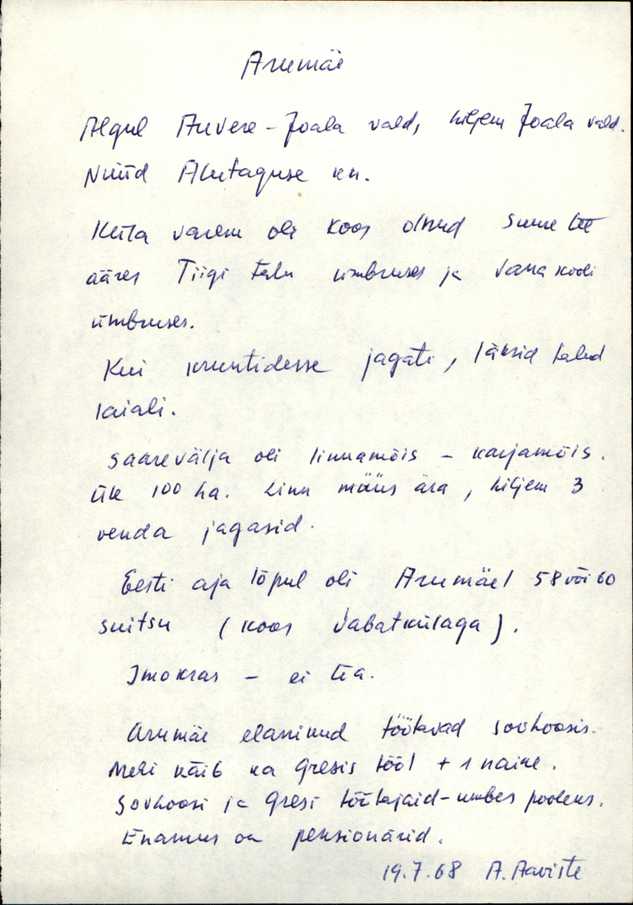 Arumäe
Algul Auvere-Joala vald, hiljem Joala vald.
Nüüd Alutaguse kn.
Küla varem oli koos olnud suure tee
ääres Tiigi talu ümbruses ja vana kooli
ümbruses.
Kui kruntidesse jagati, läksid talud
laiali.
Saarevälja oli linnamõis - karjamõis.
Üle 100 ha. Linn müüs ära, hiljem 3
venda jagasid.
Eesti aja lõpul oli Arumäel 58 või 60
suitsu (koos Vabatkülaga).
Imokras - ei tea.
Arumäe elanikud töötavad sovhoosis.
Meli käib ka Gresis tööl + 1 naine.
Sovhoosi ja Gresi töötajaid - umbes pooleks.
Enamus on pensionärid.
19.7.68 A. Aaviste